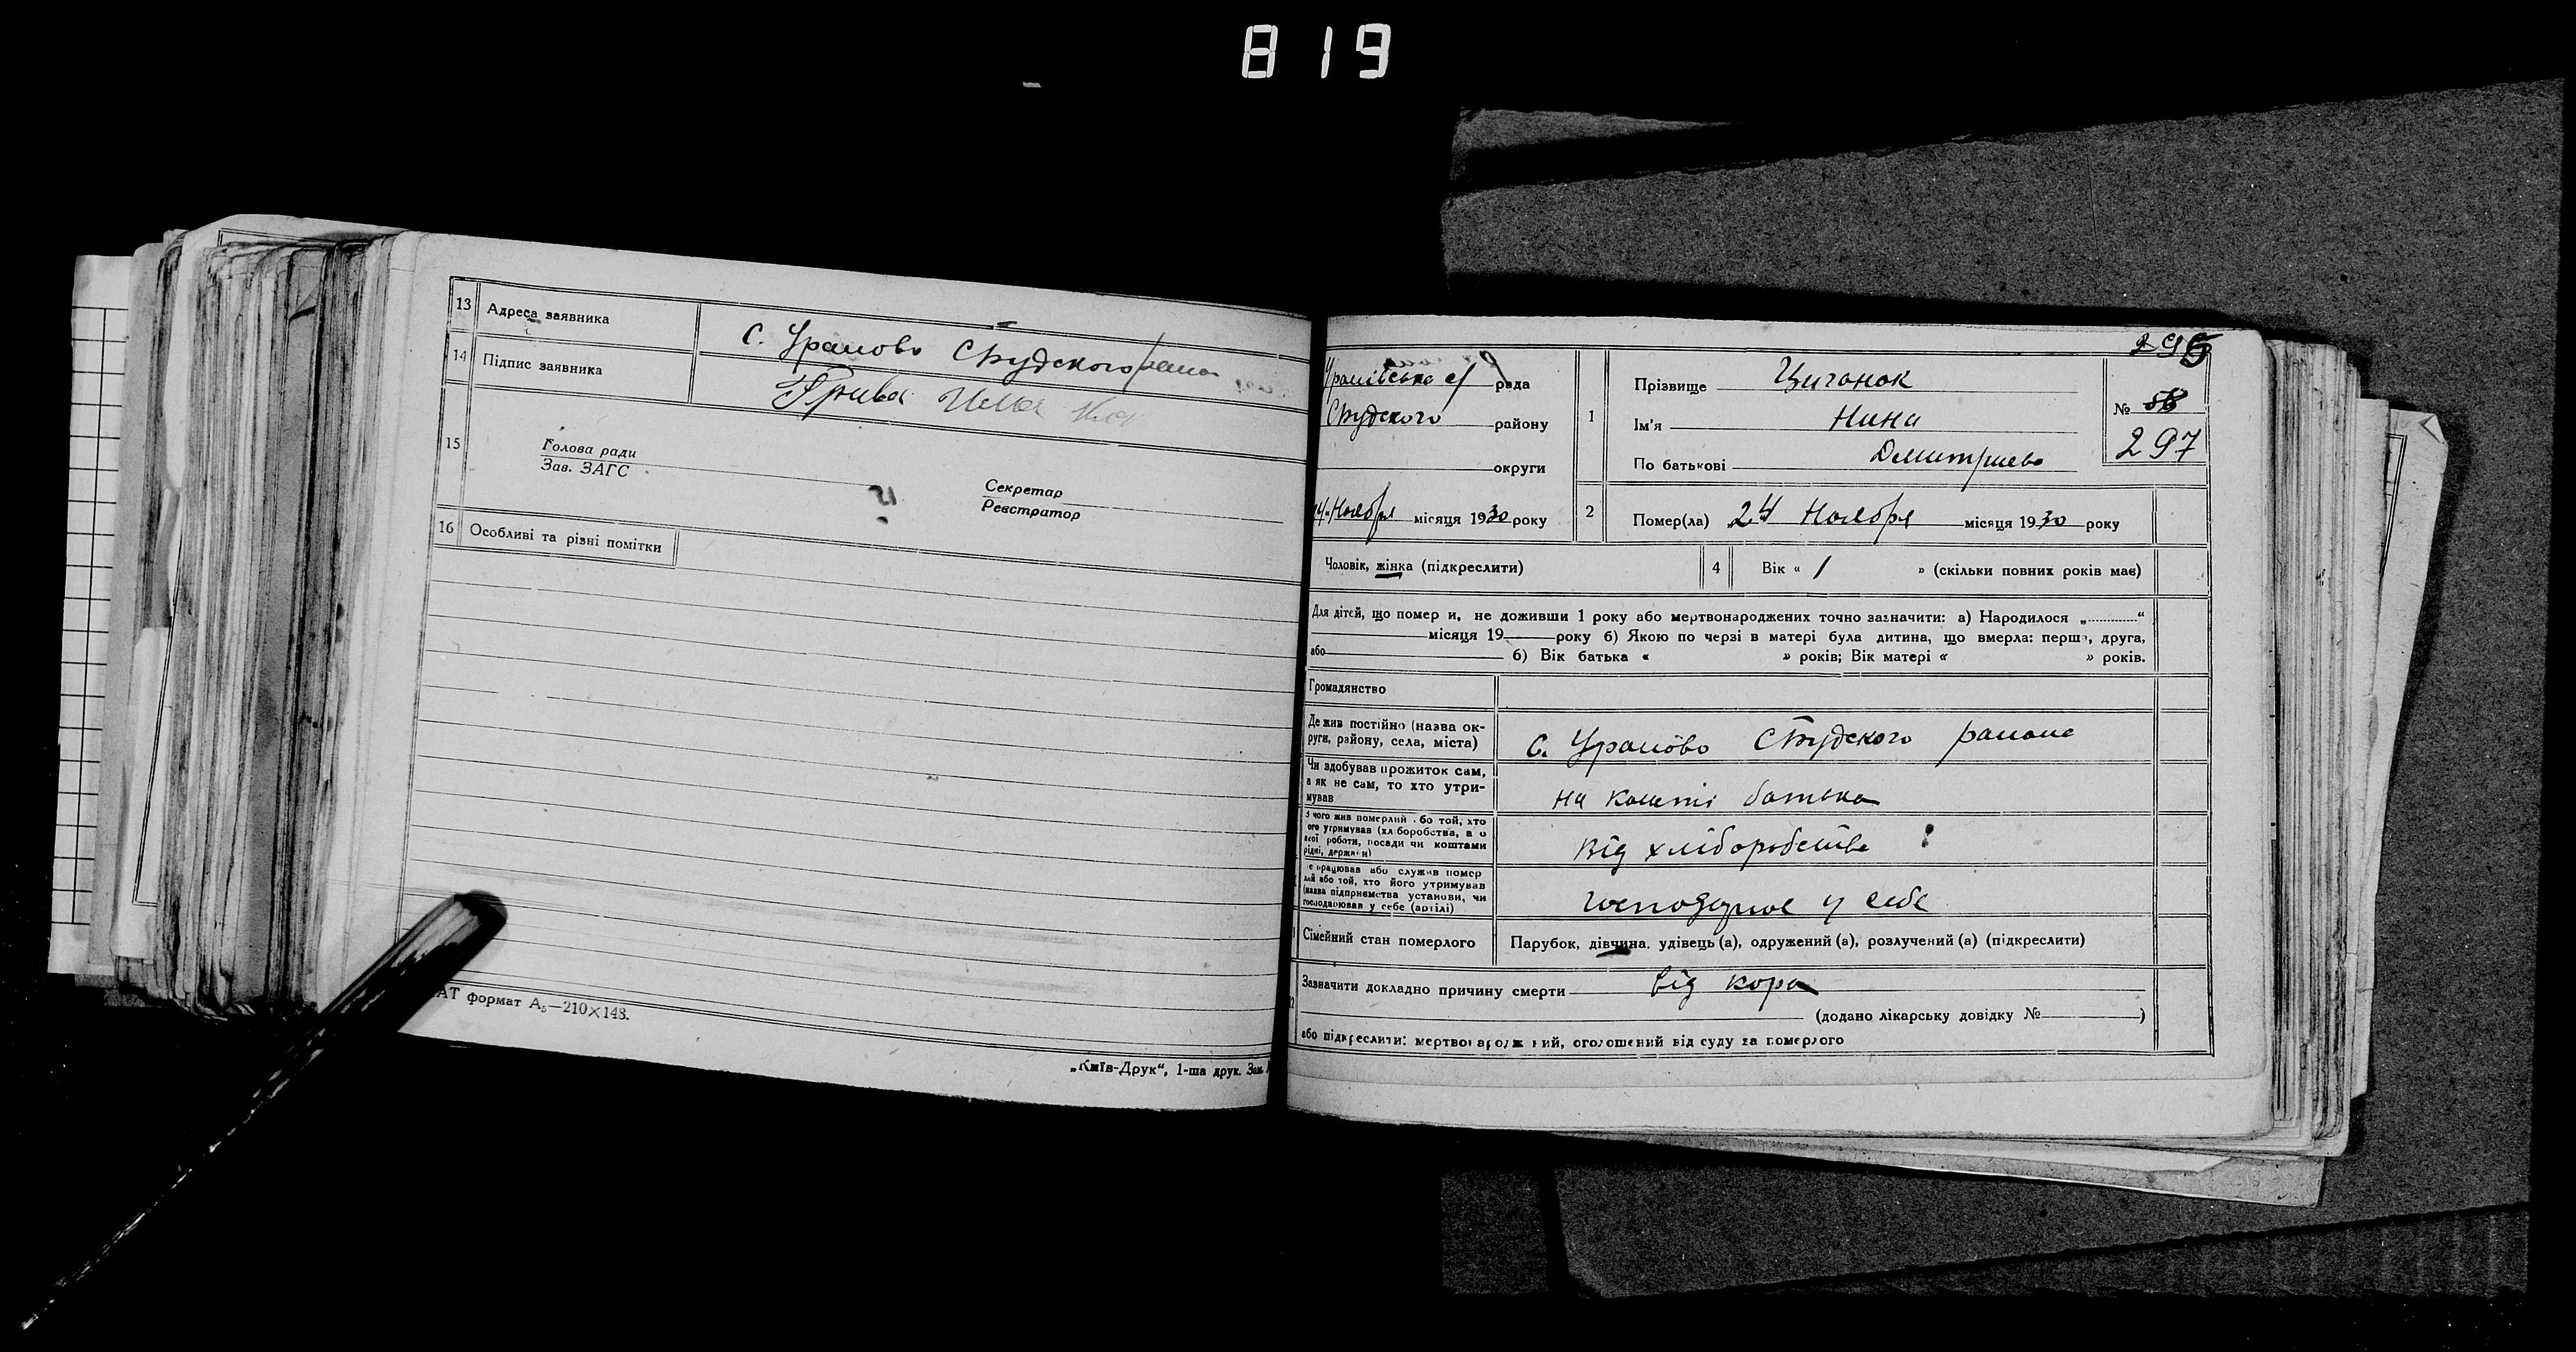 819
13 Адреса заявника С. Урамово Студского района
14 Підпис заявника Грива
15
Голова ради
Зав. ЗАГС
Секретар
Реєстратор
16 Особливі та різні помітки
АТ формат А5—210×148.
„Київ-Друк“, 1-ша друк. Зам.
295
Урамівська с/ рада
Студского району
округи
Ноября місяця 1930 року
1 Прізвище Циганок
Ім'я Нина
По батькові Дмитриева
№ 58
297
2 Помер(ла) 24 Ноября місяця 1930 року
Чоловік, жінка (підкреслити) 4 Вік « 1 » (скільки повних років має)
Для дітей, що померли, не доживши 1 року або мертвонароджених точно зазначити: а) Народилося „............“
місяця 19 року б) Якою по черзі в матері була дитина, що вмерла: перша, друга,
або б) Вік батька « » років; Вік матері « » років.
Громадянство
Де жив постійно (назва ок-
руги, району, села, міста) С. Урамово Студского района
Чи здобував прожиток сам,
а як не сам, то хто утри-
мував на кошті батька
З чого жив померлий або той, хто
його утримував (хліборобства, а о
якої роботи, посади чи коштами
рідні, держави) від хліборобства
Де працював або служив помер
лий або той, хто його утримував
(назва підприємства установи, чи
господарював у себе (артілі) господарює у себе
Сімейний стан померлого Парубок, дівчина, удівець (а), одружений (а), розлучений (а) (підкреслити)
Зазначити докладно причину смерти від кора
(додано лікарську довідку № )
або підкреслити: мертвонароджений, оголошений від суду за померлого